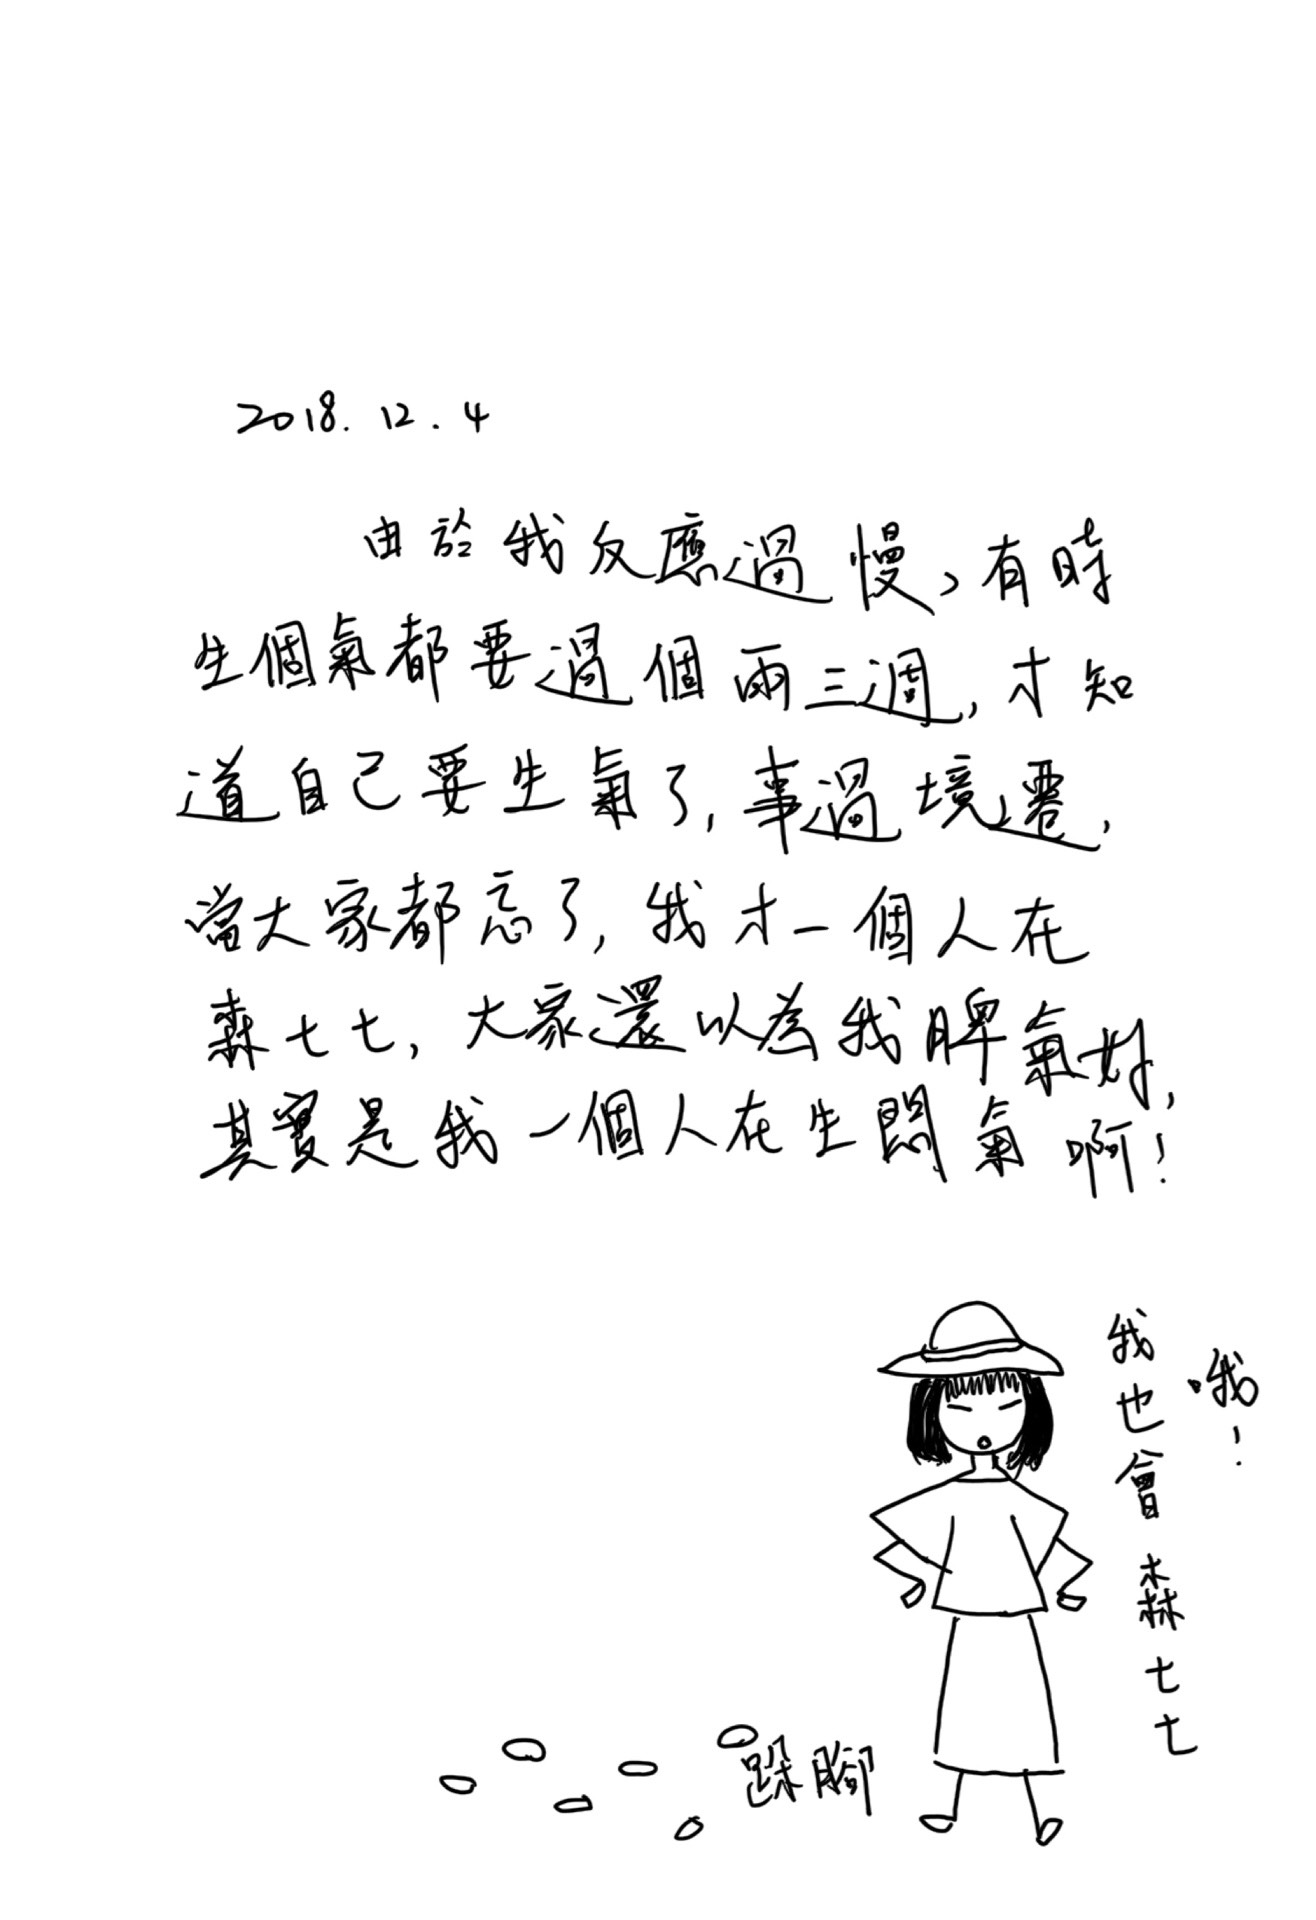 2018.12.4
由於我反應過慢,有時
生個氣都要過個兩三週,才知
道自己要生氣了,事過境遷,
當大家都忘了,我才一個人在
森七七,大家還以為我脾氣好,
其實是我一個人在生悶氣啊!
我也會森七七
哦!
跺腳